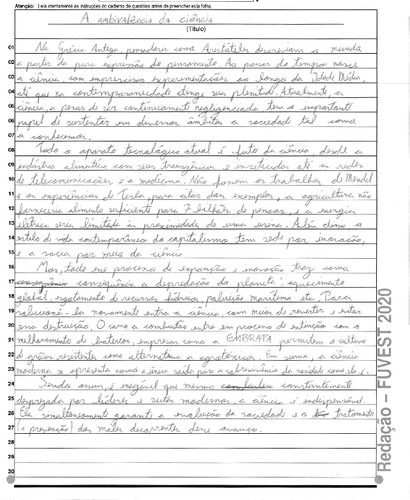 Atenção: Leia atentamente as instruções do caderno de questões antes de preencher esta folha.
A ambivalência da ciência
(Título)
01 Na Grécia Antiga, pensadores como Aristóteles descreviam o mundo
02 a partir da pura expressão do pensamento. Ao passar do tempo nasce
03 a ciência, com experimentação ao longo da Idade Média,
04 até que na contemporaneidade atinge sua plenitude. Atualmente, a
05 ciência, apesar de ser continuamente negligenciada tem o importante
06 papel de sustentar em diversos âmbitos a sociedade tal como
07 a conhecemos.
08 Todo o aparato tecnológico atual é fruto da ciência, desde a
09 indústria alimentícia com seus transgênicos e inseticidas até as redes
10 de telecomunicações e a medicina. Não fossem os trabalhos de Mendel
11 e as experiências de Tesla para citar dois exemplos, a agricultura não
12 forneceria alimento suficiente para 7 bilhões de pessoas, e a energia
13 elétrica seria limitada à proximidade de uma usina. Além disso o
14 estilo de vida contemporâneo do capitalismo tem sede por inovação,
15 e a sacia por meio da ciência.
16 Mas, todo esse processo de expansão e inovação traz uma
17 consequência a depredação do planeta, aquecimento
18 global, esgotamento de recursos hídricos, poluição marítima etc. Para
19 novamente entra a ciência, com meios de reverter e evitar
20 essa destruição. O carro a combustão entra em processo de extinção com o
21 melhoramento de baterias, empresas como a EMBRAPA permitem o cultivo
22 de grãos resistentes como alternativa a agrotóxicos. Em suma, a ciência
23 moderna se apresenta como a única saída para a sobrevivência da sociedade como ela é.
24 Sendo assim, é inegável que mesmo constantemente
25 desprezada por líderes e seitas modernas, a ciência é indispensável.
26 Ela simultaneamente garante a evolução da sociedade e o tratamento
27 e prevenção dos males decorrentes desse avanço.
28
29
30
Redação – FUVEST 2020